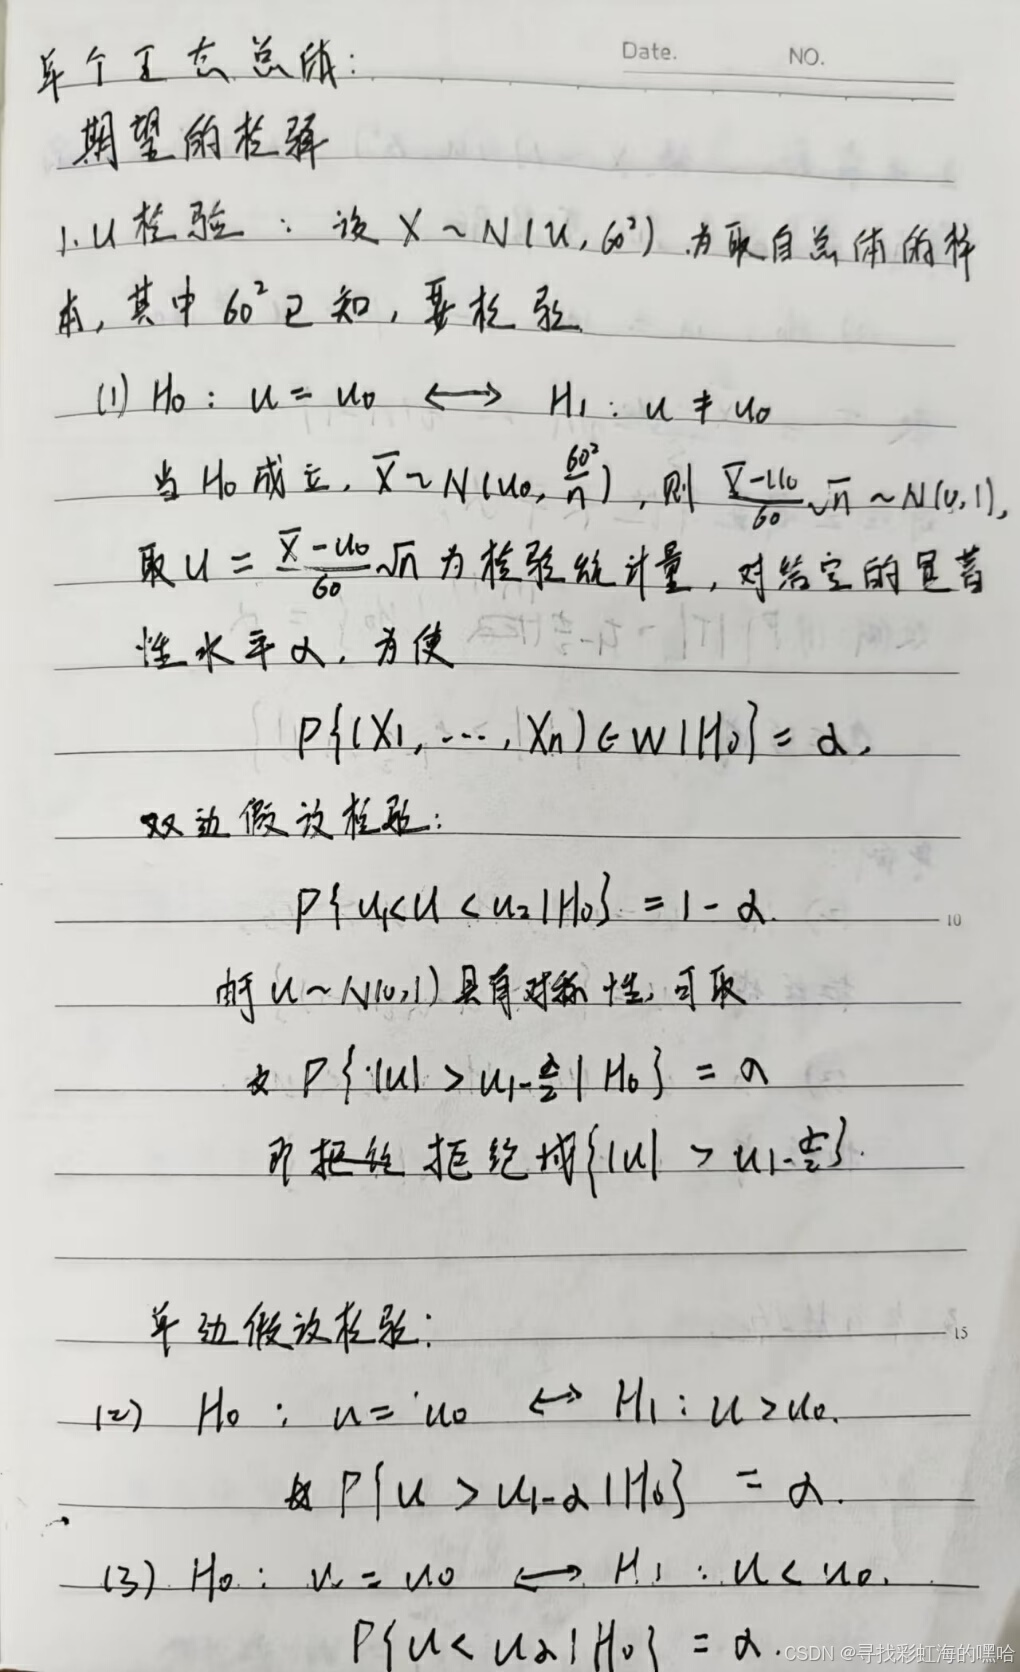 Date. NO.
单个正态总体:
期望的检验
1. U检验: 设 X ~ N(u, σ0²) 为取自总体的样
本, 其中σ0²已知, 要检验
(1) H0: u = u0 ⟷ H1: u ≠ u0
当H0成立. X̄ ~ N(u0, σ0²/n), 则 (X̄-u0)/σ0 √n ~ N(0,1),
取U = (X̄-u0)/σ0 √n 为检验统计量, 对给定的显著
性水平α, 为使
P{(X1, ..., Xn) ∈ W | H0} = α,
双边假设检验:
P{u1<U<u2 | H0} = 1-α.
10
由于U ~ N(0,1)具有对称性, 可取
故 P{|U| > u1-α/2 | H0} = α
即拒绝 拒绝域{|U| > u1-α/2}.
单边假设检验:
15
(2) H0: u = u0 ⟷ H1: u > u0.
故 P{U > u1-α | H0} = α.
(3) H0: u = u0 ⟷ H1: u < u0.
P{U < uα | H0} = α.
CSDN @寻找彩虹海的嘿哈